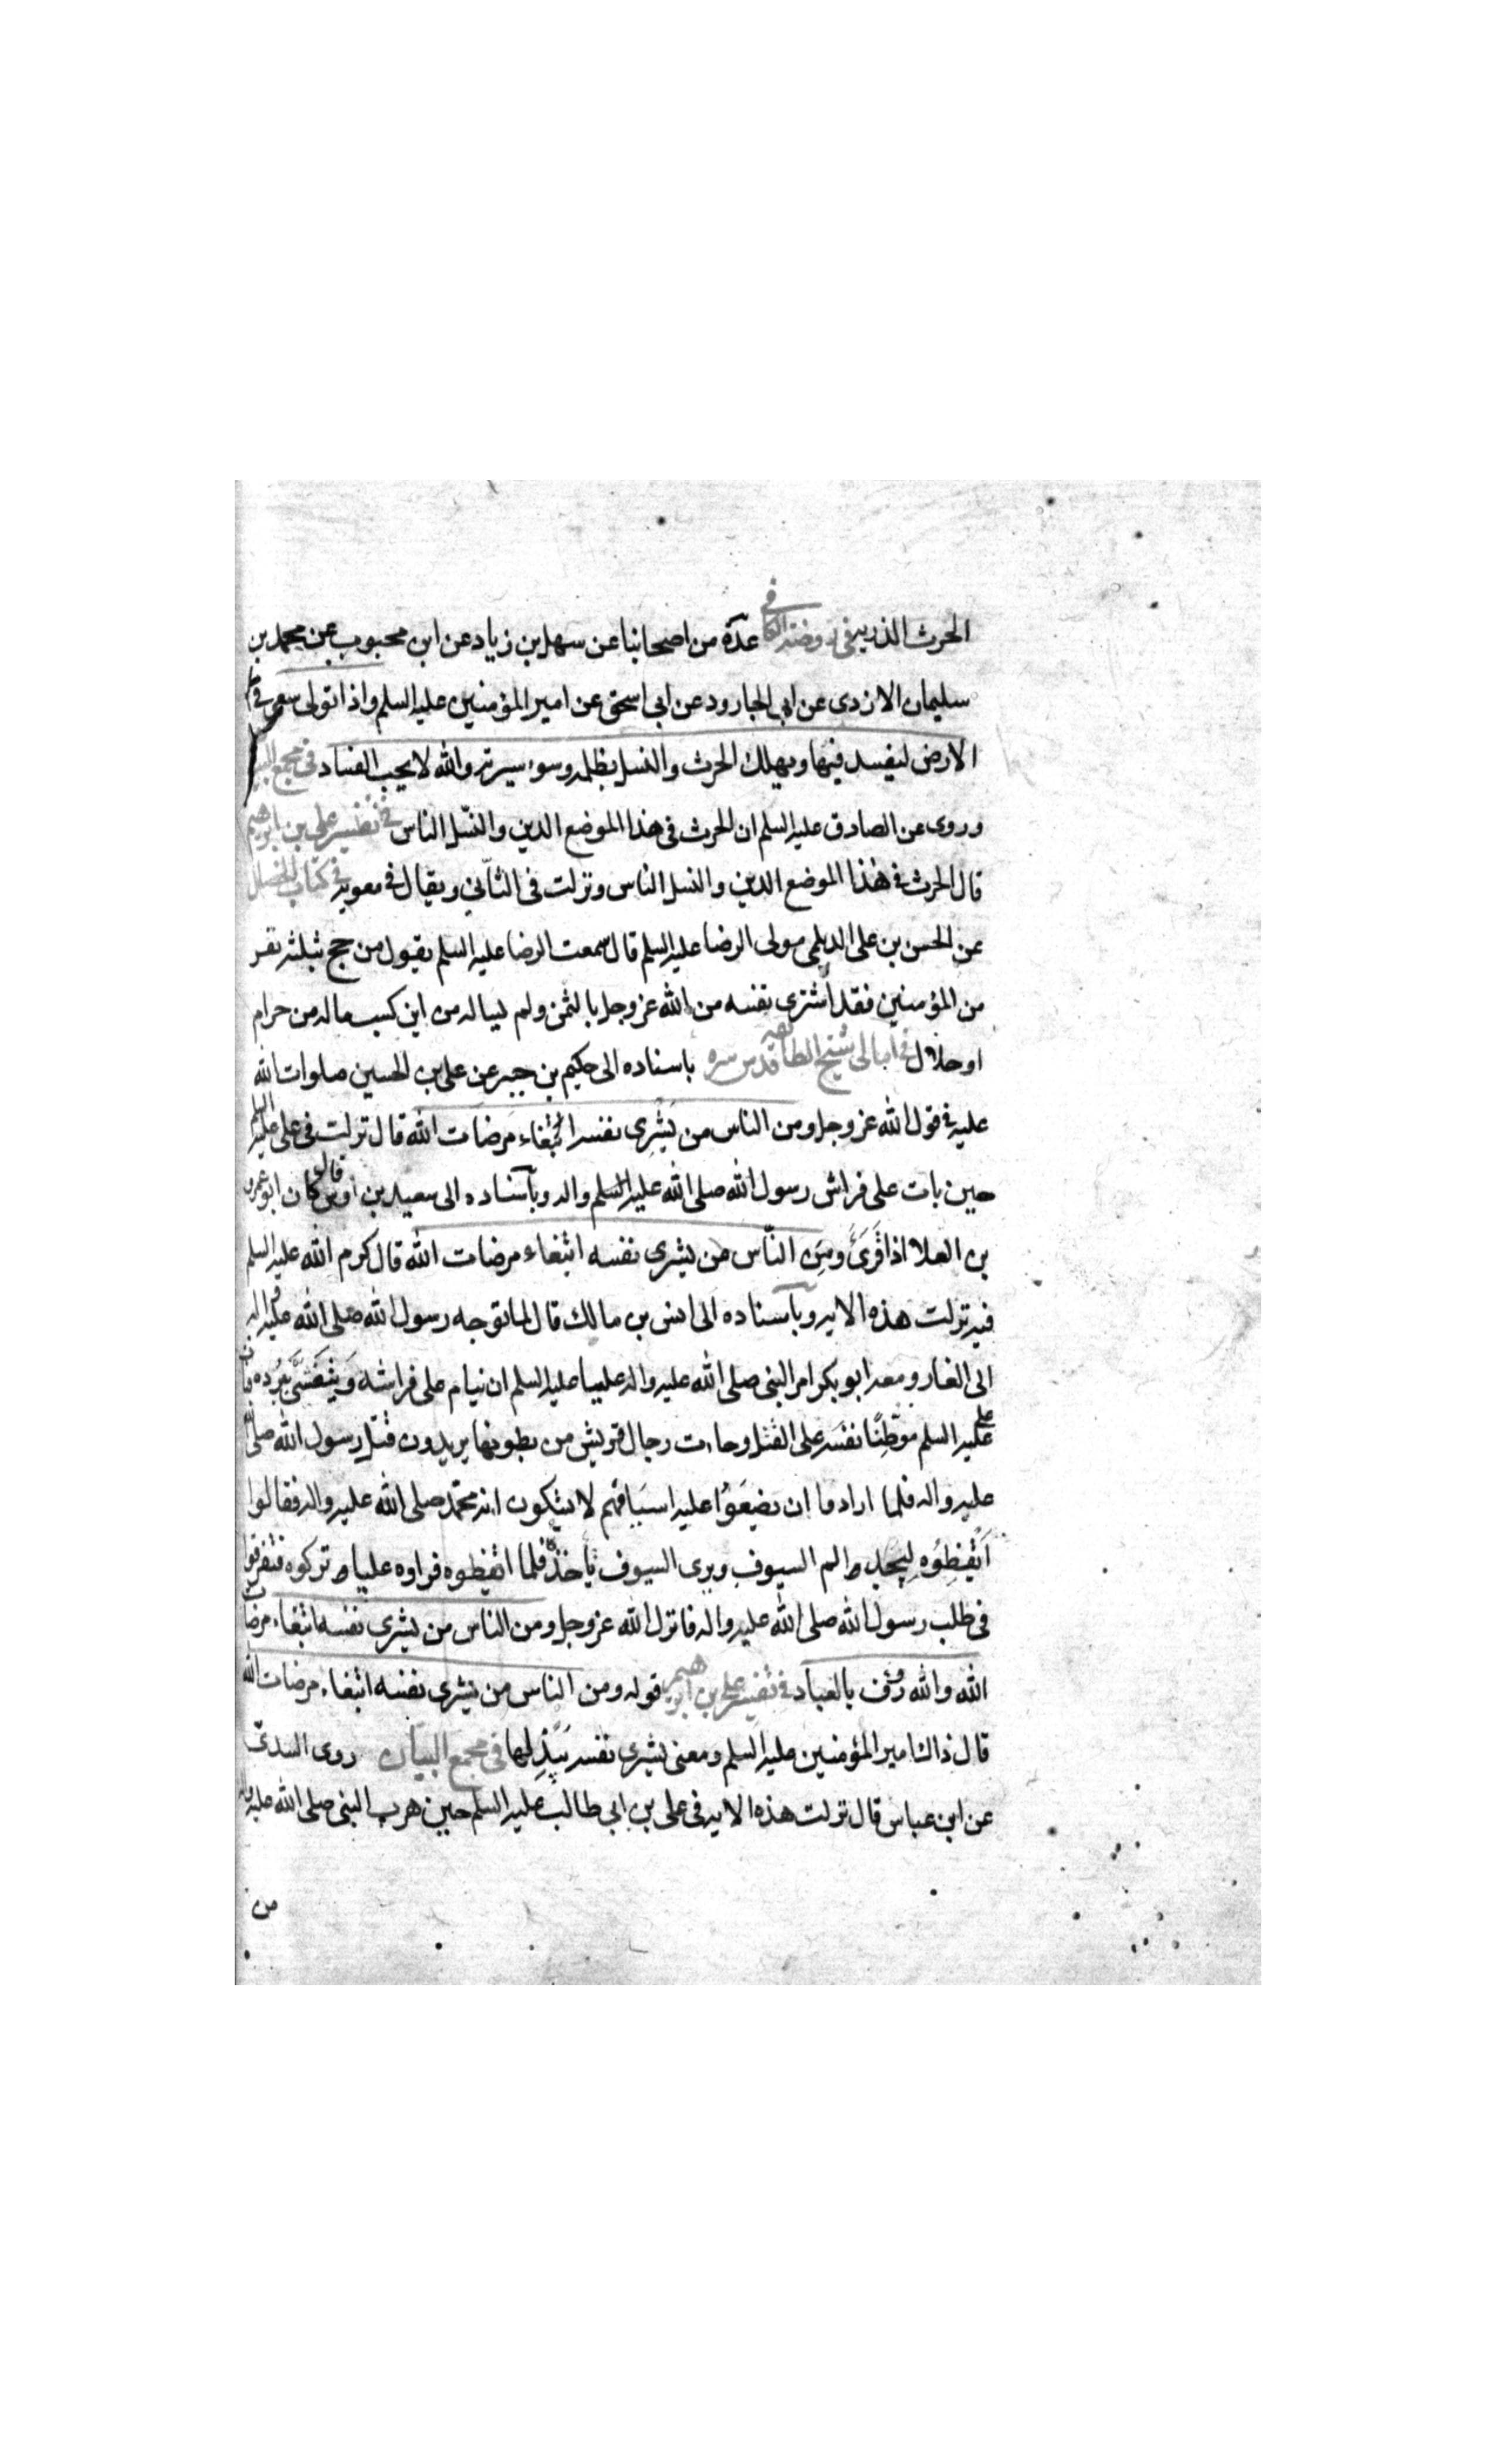 الحرث الذرية في روضة الكافي عدة من اصحابنا عن سهل بن زياد عن ابن محبوب عن محمد بن
سليمان الازدى عن ابى الجارود عن ابى اسحق عن امير المؤمنين عليه السلم واذا تولى سعى فى
الارض ليفسد فيها ويهلك الحرث والنسل بظلمه وسوء سيرته والله لا يحب الفساد فى مجمع البيان
وروى عن الصادق عليه السلم ان الحرث فى هذا الموضع الدين والنسل الناس فى تفسير على بن ابراهيم
قال الحرث فى هذا الموضع الدين والنسل الناس ونزلت فى الثانى ويقال فى معوية فى كتاب الخصال
عن الحسن بن على الديلمى مولى الرضا عليه السلم قال سمعت الرضا عليه السلم يقول من حج بثلثة نفر
من المؤمنين فقد اشترى نفسه من الله عز وجل بالثمن ولم يساله من اين كسب ماله من حرام
او حلال فى امالى شيخ الطائفه قدس سره باسناده الى حكيم بن جبير عن على بن الحسين صلوات الله
عليه فى قول الله عز وجل ومن الناس من يَشْرِى نفسه ابتغاء مرضات الله قال نزلت فى على عليه السلم
حين بات على فراش رسول الله صلى الله عليه السلم واله وباسناده الى سعيد بن اوس قال كان ابو عمرو
بن العلا اذا قَرَىَٔ ومِنَ النّاس من يشرى نفسه ابتغاء مرضات الله قال كرم الله عليه السلم
فيه نزلت هذه الاية وباسناده الى انس بن مالك قال لما توجه رسول الله صلى الله عليه واله
الى الغار ومعه ابو بكر امر النبى صلى الله عليه واله عليا عليه السلم ان ينام على فراشه وَيتغَشّى بُرده فبات
على عليه السلم موطّنًا نفسه على القتل وجاءت رجال قريش من بطونها يريدون قتل رسول الله صلى الله
عليه واله فلما ارادوا ان يضَعَوُا عليه اسيافهم لا يشكون انه محمّد صلى الله عليه واله فقالوا
اَيْقِظوُه لِيجد الم السيوف ويرى السيوف تاخذه فلما ايقظوه فراوه عليا تركوه فتفرقوا
فى طلب رسول الله صلى الله عليه واله فانزل الله عز وجل ومن الناس من يشرى نفسه ابتغاء مرضات
الله والله رؤف بالعباد فى تفسير على بن ابراهيم قوله ومن الناس من يشرى نفسه ابتغاء مرضات الله
قال ذاك امير المؤمنين عليه السلم ومعنى يشرى نفسه يَبْذِلها فى مجمع البيان روى السدىّ
عن ابن عباس قال نزلت هذه الاية فى على بن ابى طالب عليه السلم حين هرب النبى صلى الله عليه واله
من